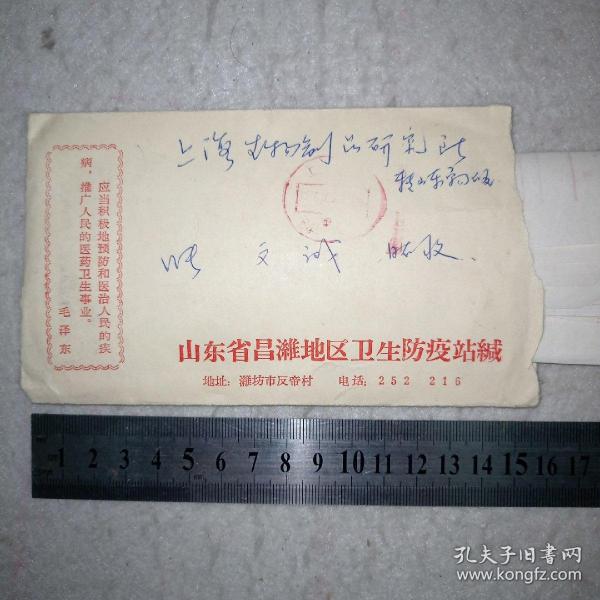 上海生物制品研究所
转山东菊社
张文诚 收
应当积极地预防和医治人民的疾
病，推广人民的医药卫生事业。
毛泽东
山东省昌潍地区卫生防疫站缄
地址：潍坊市反帝村 电话：252 216
1 2 3 4 5 6 7 8 9 10 11 12 13 14 15 16 17
孔夫子旧书网
www.kongfz.com